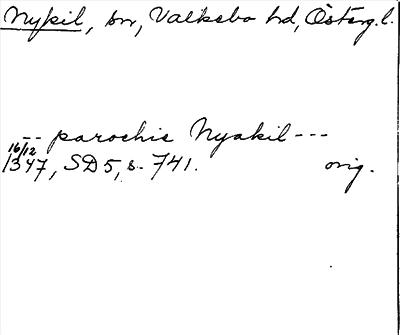 Nykil, sn, Valkebo hd, Österg. l.
-- parochie Nyakil ---
16/12 1347, SD 5, s. 741. orig.